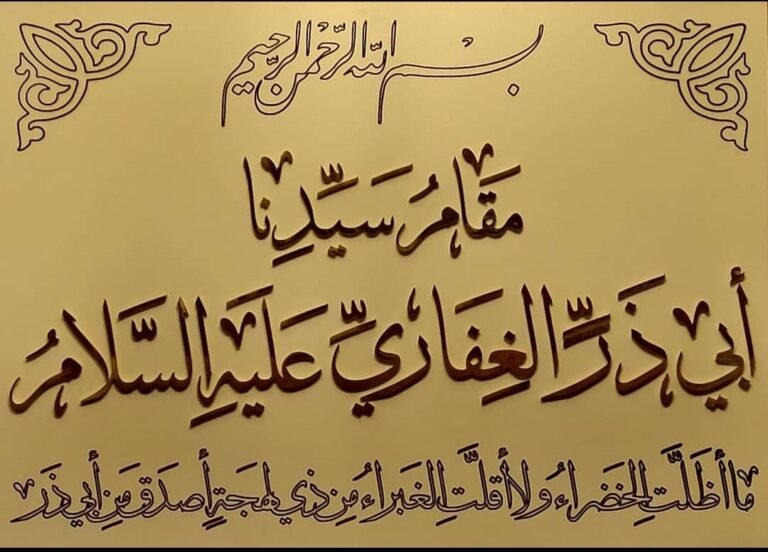 بسم الله الرحمن الرحيم
مَقَامُ سَيِّدِنا
أبي ذَرٍّ الغِفَاريِّ عَلَيهِ السَّلامُ
ما أظلَّتِ الخضراءُ ولا أقلَّتِ الغبراءُ مِن ذي لهجةٍ أصدَق مِن أبي ذَر